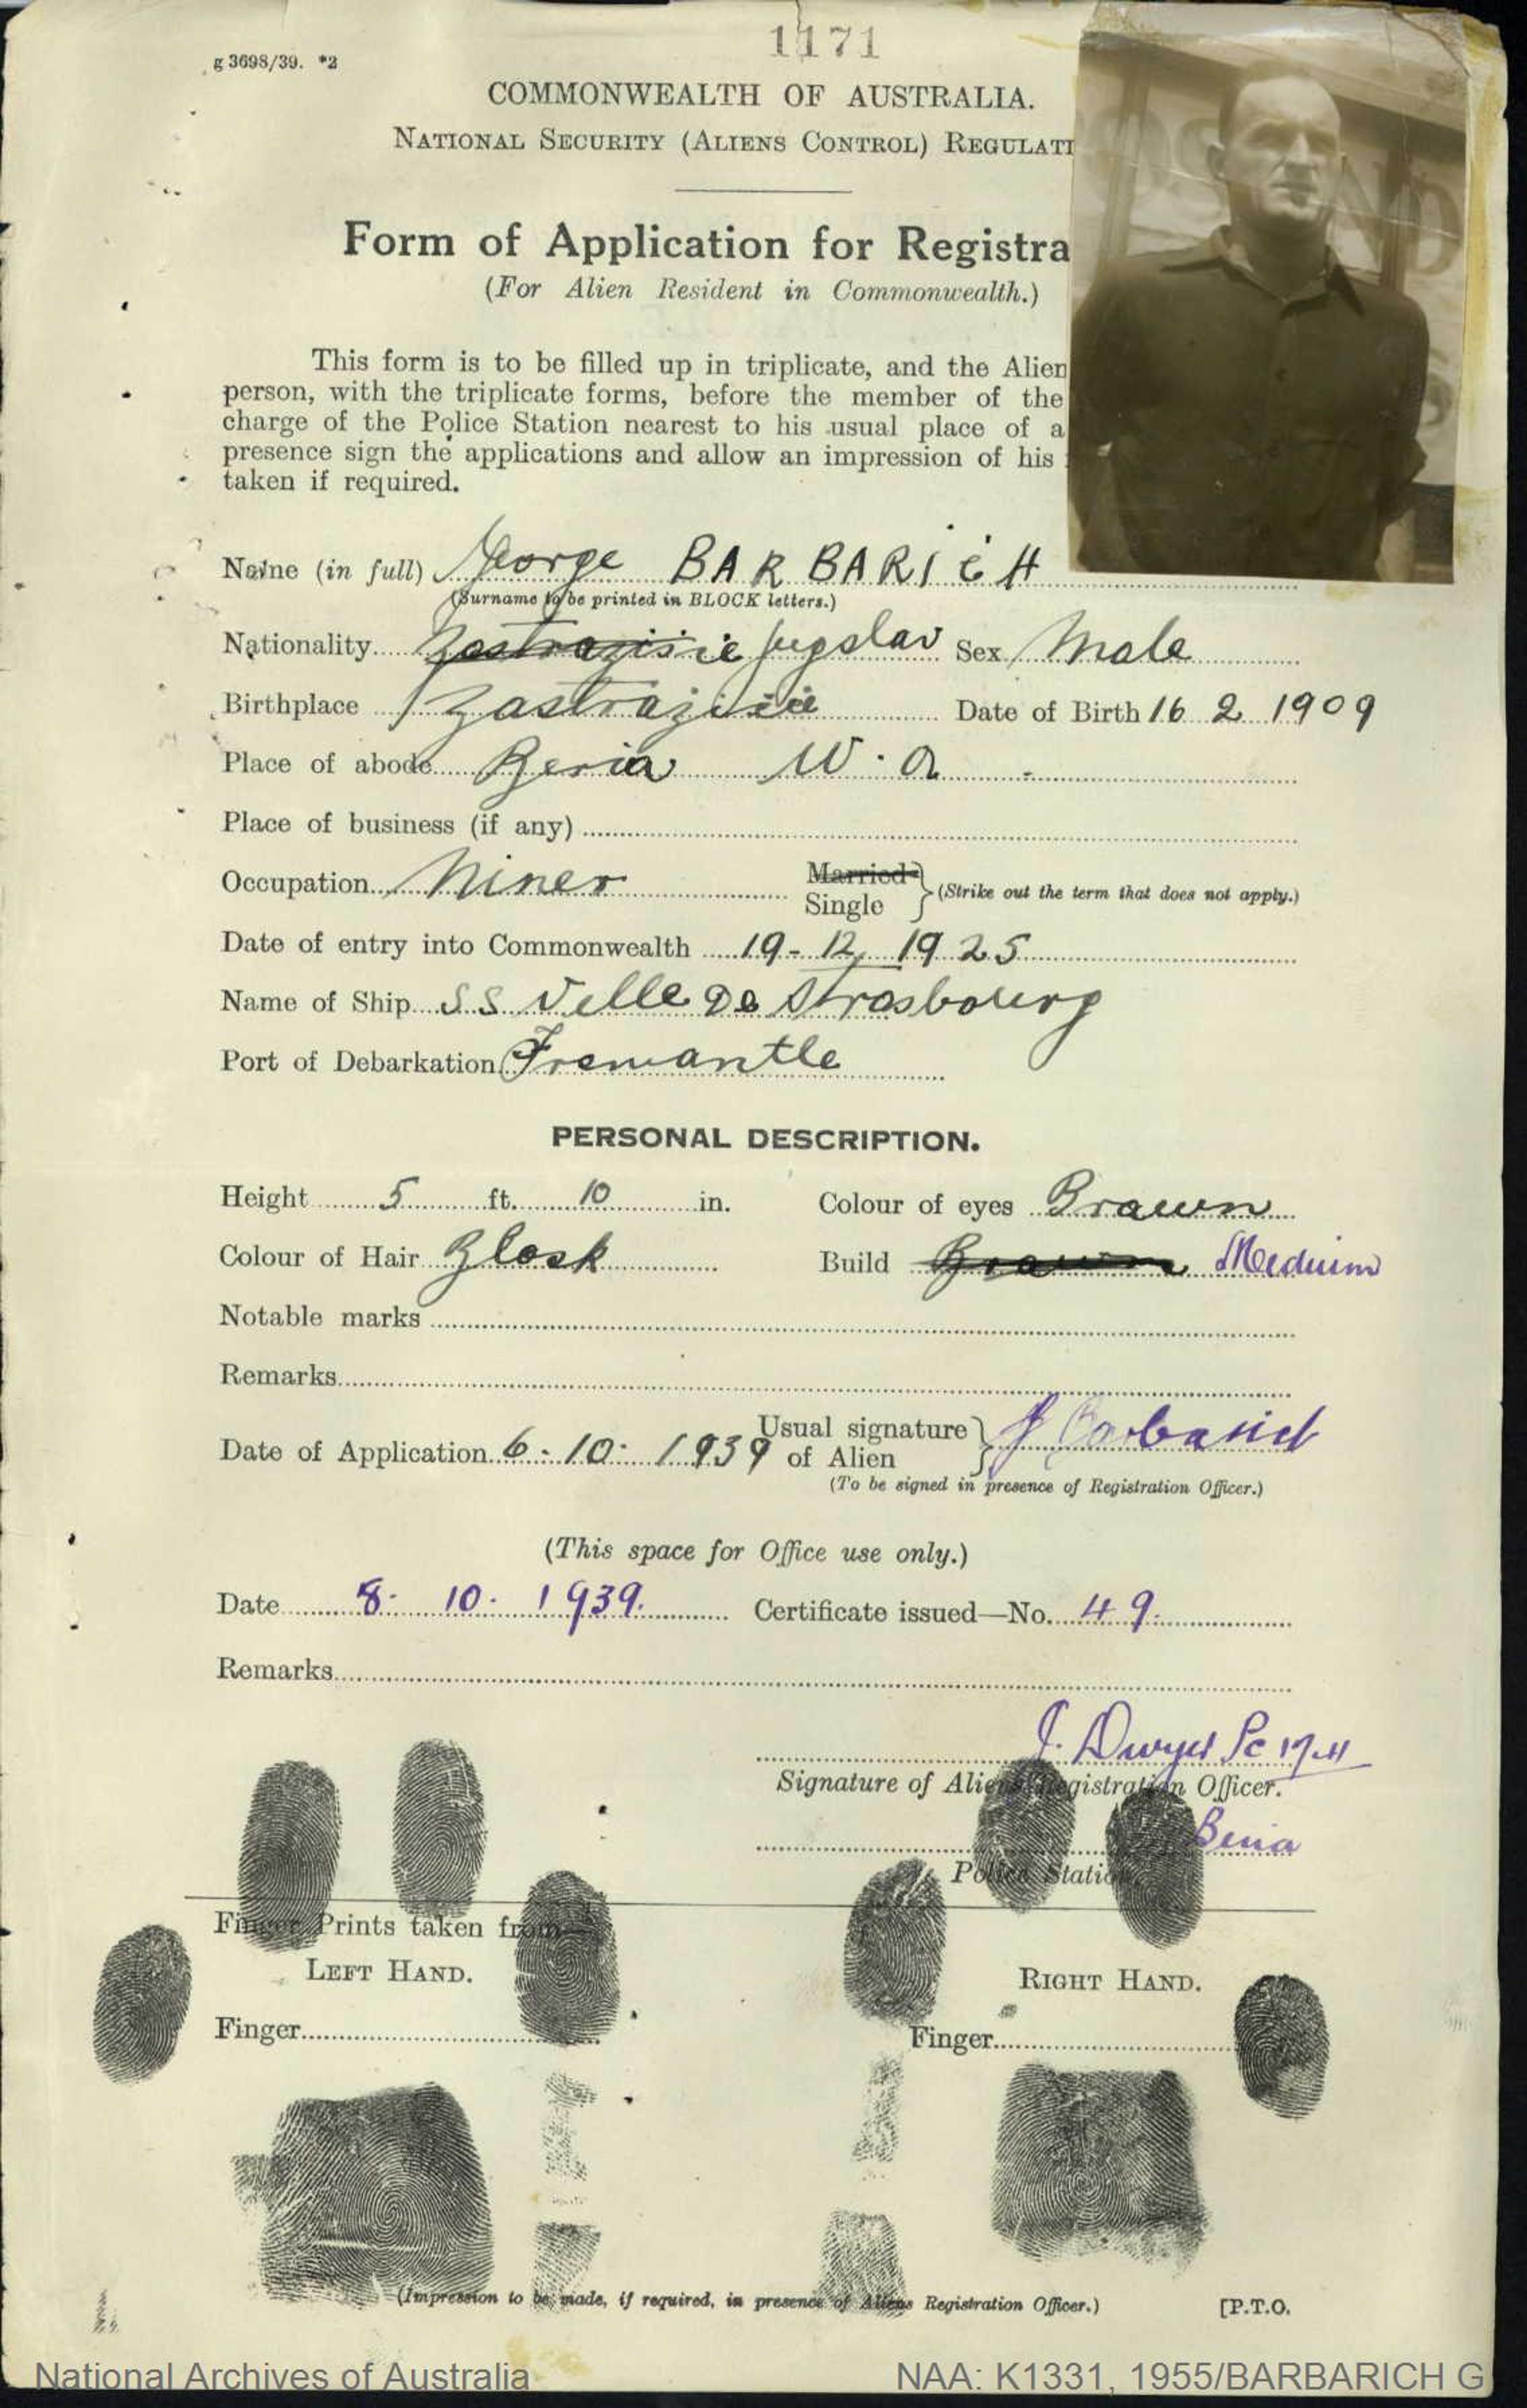 1171
g 3698/39. *2
COMMONWEALTH OF AUSTRALIA.
NATIONAL SECURITY (ALIENS CONTROL) REGULATI
Form of Application for Registra
(For Alien Resident in Commonwealth.)
This form is to be filled up in triplicate, and the Alien
person, with the triplicate forms, before the member of the
charge of the Police Station nearest to his usual place of a
presence sign the applications and allow an impression of his
taken if required.
Name (in full) George BARBARICH
(Surname to be printed in BLOCK letters.)
Nationality Jugslav Sex Male
Birthplace Zastrazisie Date of Birth 16 2 1909
Place of abode Beria W. A
Place of business (if any)
Occupation Miner Married
Single } (Strike out the term that does not apply.)
Date of entry into Commonwealth 19-12 1925
Name of Ship SS Velle De Strasbourg
Port of Debarkation Fremantle
PERSONAL DESCRIPTION.
Height 5 ft. 10 in. Colour of eyes Brawn
Colour of Hair Black Build Brawn Medium
Notable marks
Remarks
Date of Application 6-10-1939 Usual signature of Alien } G Barbarich
(To be signed in presence of Registration Officer.)
(This space for Office use only.)
Date 8. 10. 1939. Certificate issued—No. 49.
Remarks
J. Dwyer Pc 1741
Signature of Aliens Registration Officer.
Beria
Police Station
Finger Prints taken from—
LEFT HAND. RIGHT HAND.
Finger Finger
(Impression to be made, if required, in presence of Aliens Registration Officer.)
[P.T.O.
National Archives of Australia NAA: K1331, 1955/BARBARICH G